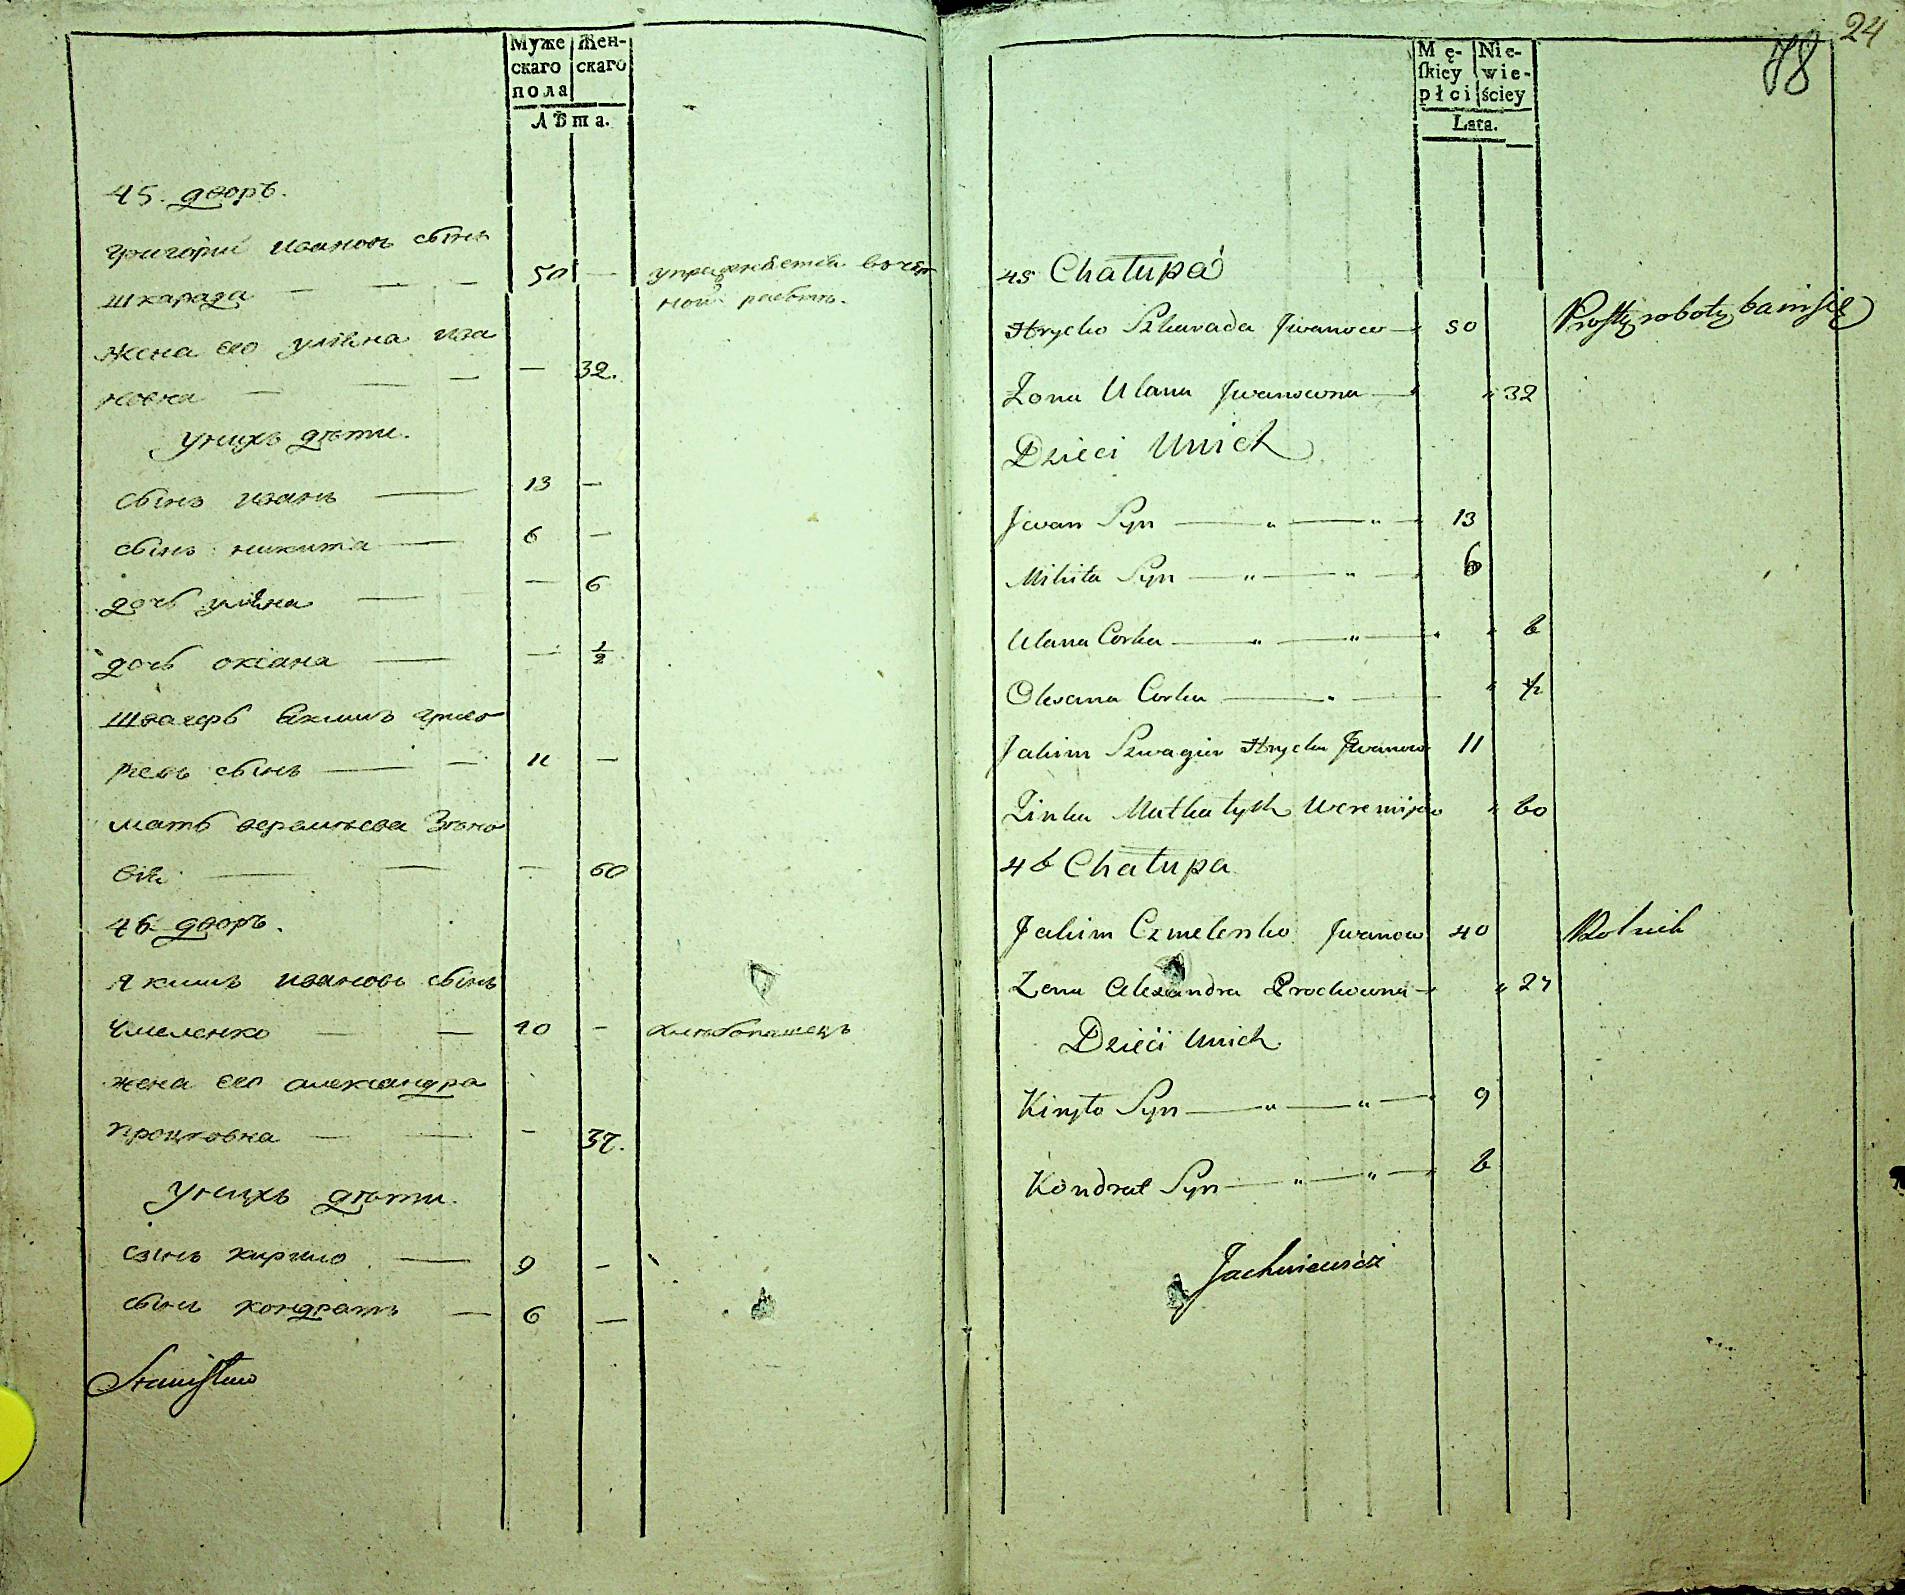 Муже Жен-
скаго скаго
пола
Лѣта.
45. дворъ.
Григорій ивановъ сынъ
шкарада — — — 50 — упражняется вочер
ной работѣ.
жена его уліяна ива
новна — — — — 32.
унихъ дѣти.
сынъ иванъ — 13 —
сынъ никита — 6 —
дочь уліяна — — 6
дочь оксана — — 1/2
швагерь Якимъ григо
риевъ сынъ — — 11 —
мать веремѣева Зѣно
вія — — — 60
46 дворъ.
Якимъ ивановъ сынъ
Чмеленко — — 40 — хлѣбопашецъ
жена его александра
Процковна — — — 37.
унихъ дѣти.
сынъ кирило — 9 —
сынъ кондратъ — 6 —
Stanisław
24
78
Mę- Nie-
ſkiey wie-
płci ściey
Lata.
45 Chałupa
Hrycko Szkarada Jwanow — 50 Prostą robotą bawi się
Zona Ulana Jwanowna — " 32
Dzieci Unich
Jwan Syn — " — " — 13
Mikita Syn — " — " — 6
Ulana Corka — " — " — " 6
Olexana Corka — " — " 1/2
Jakim Szwagier Hrycka Jwanow 11
Zinka Matka tych Weremijow " 60
46 Chałupa
Jakim Czmelenko Jwanow 40 Rolnik
Zona Alexandra Prockowna — " 27
Dzieci Unich
Kiryło Syn — " — " — 9
Kondrat Syn — " — " — 6
Jachniewicz